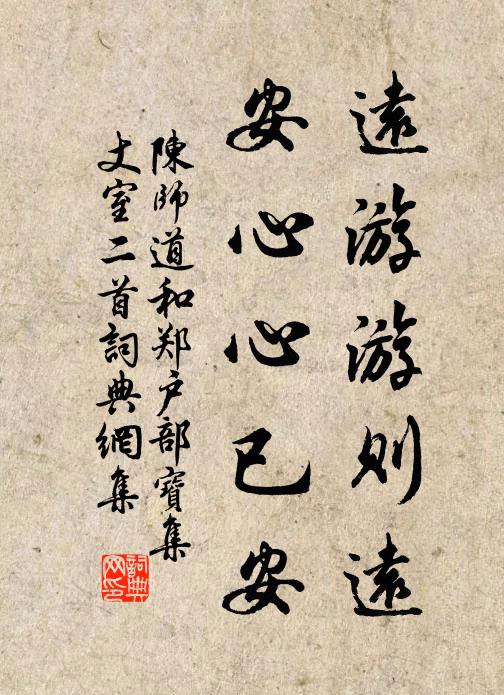 遠游游則遠
安心心已安
陳師道和郑户部寶集
丈室二首詞典網集
詞典
网印